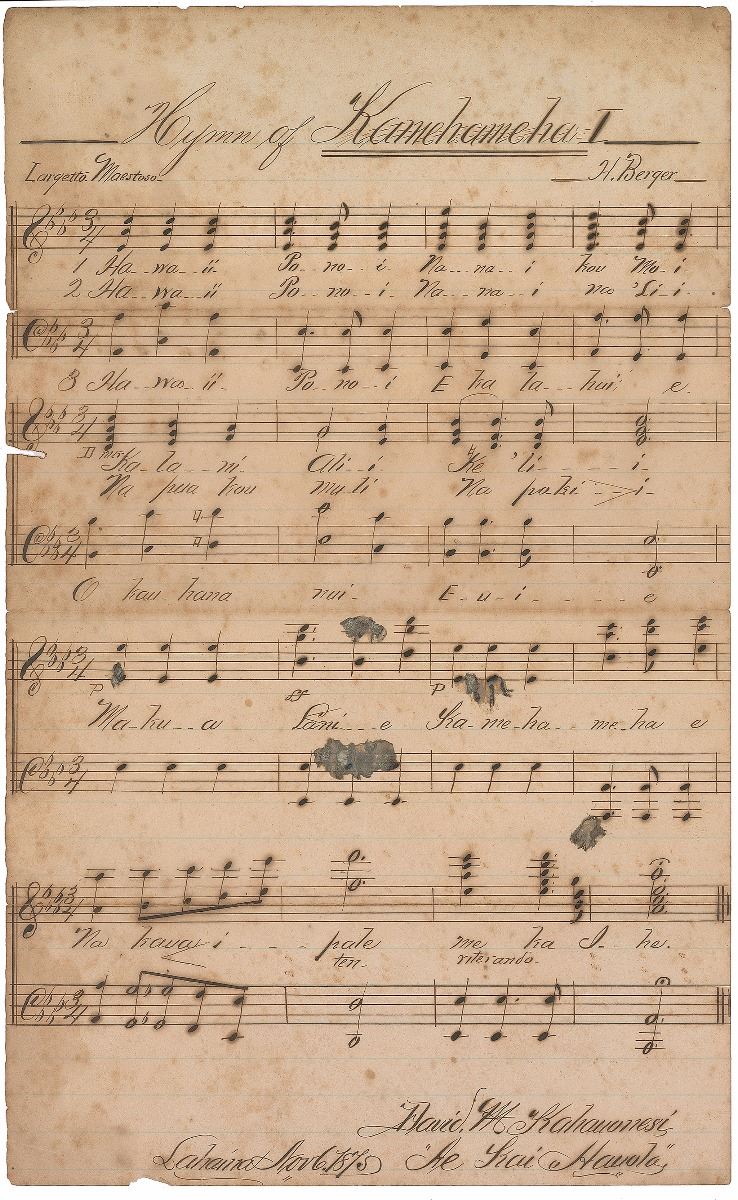 Hymn of Kamehameha I
Largetto Maestoso H. Berger
3/4
1 Ha--wa--ii Po--no--i Na--na--i kou Mo-i
2 Ha--wa--ii Po--no--i Na--na--i na 'Li-i
3/4
3 Ha--wa-ii Po-no-i E ka la-hui e
3/4
Ka-la--ni Ali-i Ke 'li----i-
Na pua kou muli Na poki--i-
3/4
O kau hana nui- E-u-i---- e
3/4
P ff P
Ma-ku--a Lani--e Ka-me-ha--me-ha e
3/4
3/4
Na kaua i---- pale me ka I-he.
ten. riterando.
3/4
David M
Lahaina Nov 6. 1875 "Ke Kai